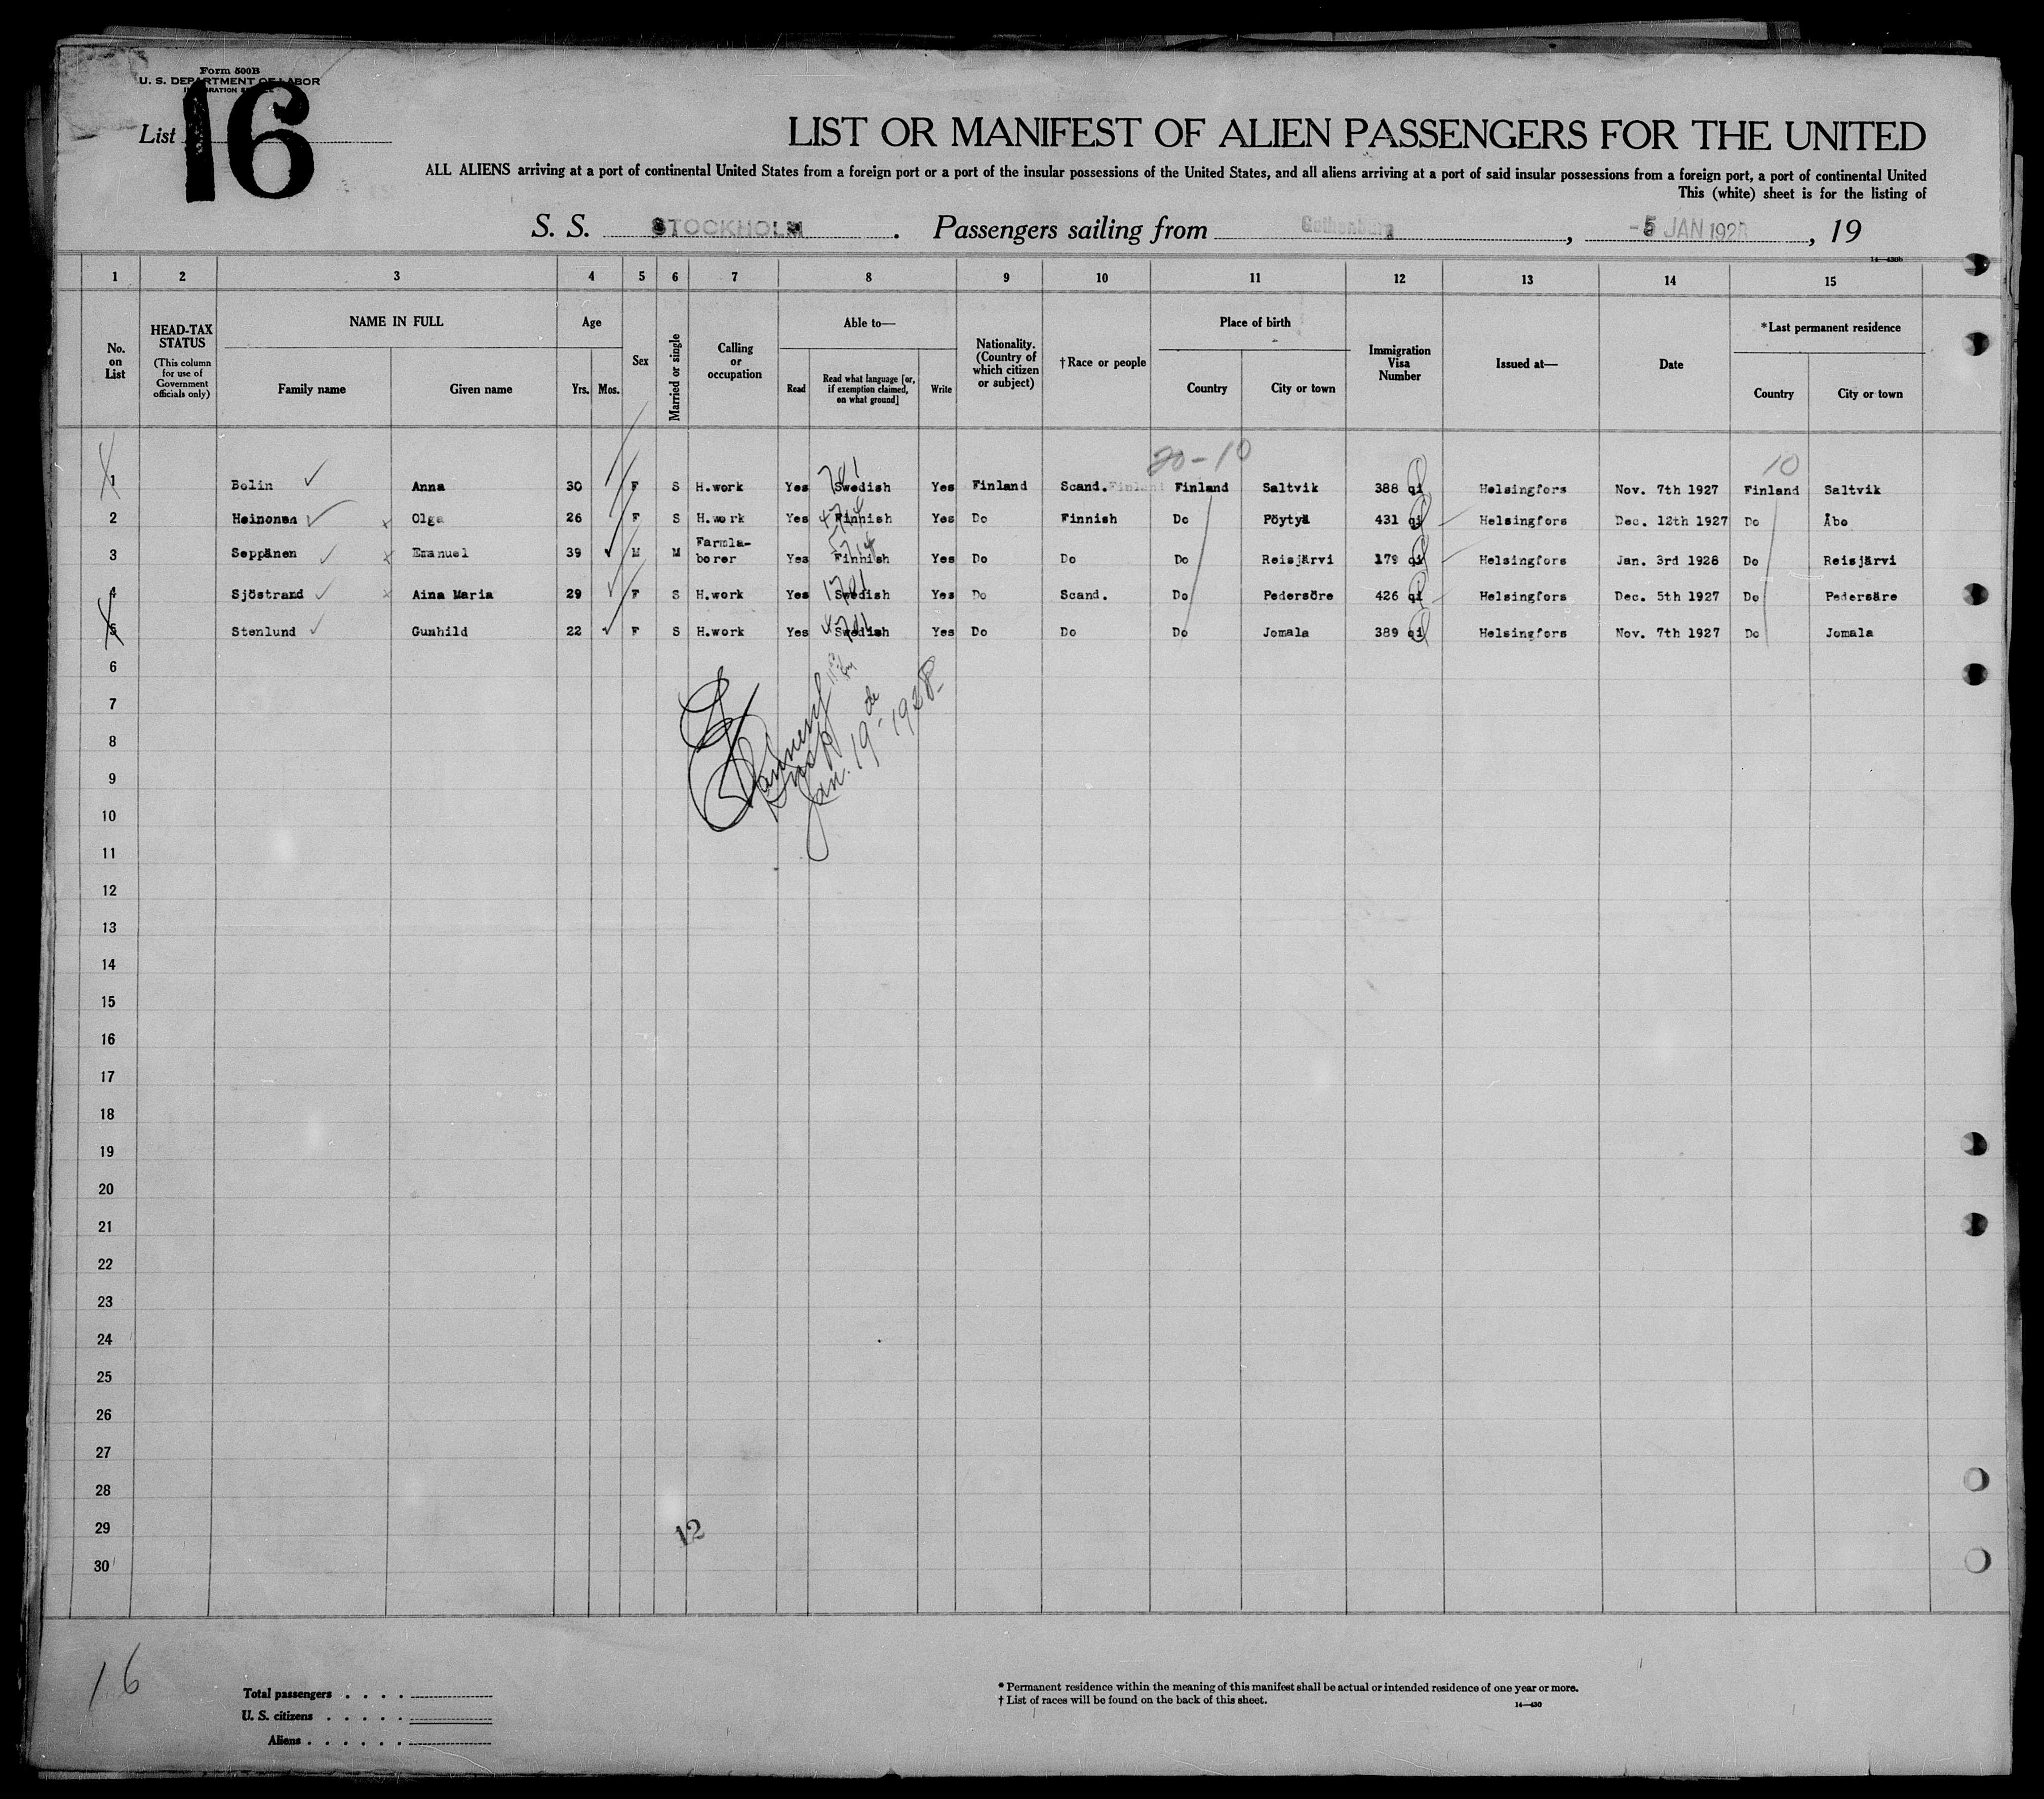 Form 500B
U. S. DEPARTMENT OF LABOR
IMMIGRATION SERVICE
List 16
LIST OR MANIFEST OF ALIEN PASSENGERS FOR THE UNITED
ALL ALIENS arriving at a port of continental United States from a foreign port or a port of the insular possessions of the United States, and all aliens arriving at a port of said insular possessions from a foreign port, a port of continental United
This (white) sheet is for the listing of
S. S. STOCKHOLM. Passengers sailing from Gothenburg, -5 JAN 1928, 19
14—430b
1 2 3 4 5 6 7 8 9 10 11 12 13 14 15
No. on List
HEAD-TAX STATUS (This column for use of Government officials only)
NAME IN FULL
Family name Given name
Age
Yrs. Mos.
Sex
Married or single
Calling or occupation
Able to—
Read
Read what language [or, if exemption claimed, on what ground]
Write
Nationality. (Country of which citizen or subject)
†Race or people
Place of birth
Country City or town
Immigration Visa Number
Issued at—
Date
*Last permanent residence
Country City or town
20-10 10
1 Bolin Anna 30 F S H.work Yes Swedish Yes Finland Scand. Finland Finland Saltvik 388 qi Helsingfors Nov. 7th 1927 Finland Saltvik
2 Heinonen Olga 26 F S H.work Yes Finnish Yes Do Finnish Do Pöytyä 431 qi Helsingfors Dec. 12th 1927 Do Åbo
3 Seppänen Emanuel 39 M M Farmla-borer Yes Finnish Yes Do Do Do Reisjärvi 179 qi Helsingfors Jan. 3rd 1928 Do Reisjärvi
4 Sjöstrand Aina Maria 29 F S H.work Yes Swedish Yes Do Scand. Do Pedersöre 426 qi Helsingfors Dec. 5th 1927 Do Pedersäre
5 Stenlund Gunhild 22 F S H.work Yes Swedish Yes Do Do Do Jomala 389 qi Helsingfors Nov. 7th 1927 Do Jomala
6
7
Insp
Jan. 19 - 1928
8
9
10
11
12
13
14
15
16
17
18
19
20
21
22
23
24
25
26
27
28
29
12
30
16
Total passengers . . . .
U. S. citizens . . . . .
Aliens . . . . . .
* Permanent residence within the meaning of this manifest shall be actual or intended residence of one year or more.
† List of races will be found on the back of this sheet.
14—430